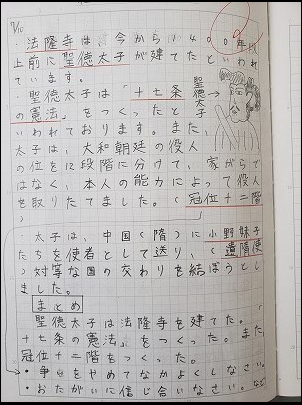 7/10
・法隆寺は、今から1400年以
上前に聖徳太子が建てたといわれ
ています。
・聖徳太子は、「十七条
の憲法」をつくったと
いわれております。また、
聖徳太子→
太子は、大和朝廷の役人
の位を12段階に分けて、家がらで
はなく、本人の能力によって役人
を取りたてました。(冠位十二階
)
・太子は、中国(隋)に小野妹子
たちを使者として送り、(遣隋使
)対等な国の交わりを結ぼうとし
ました。
まとめ
聖徳太子は法隆寺を建てた。「
十七条の憲法」をつくった。また、
冠位十二階をつくった。
・争いをやめてなかよくしなさい。
・おたがいに信じ合いなさい。など